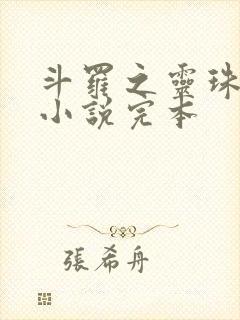 斗羅之靈珠
小說完本
張希舟